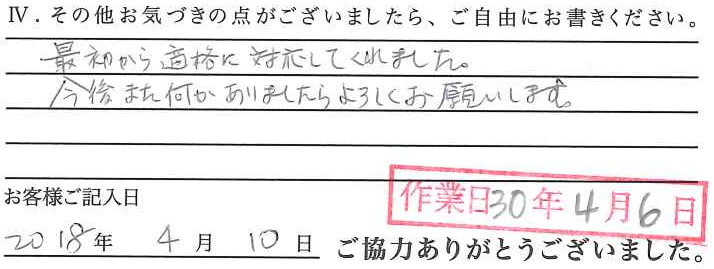 Ⅳ．その他お気づきの点がございましたら、ご自由にお書きください。
最初から適格に対応してくれました。
今後また何かありましたらよろしくお願いします。
お客様ご記入日
作業日30年4月6日
2018年 4月 10日 ご協力ありがとうございました。